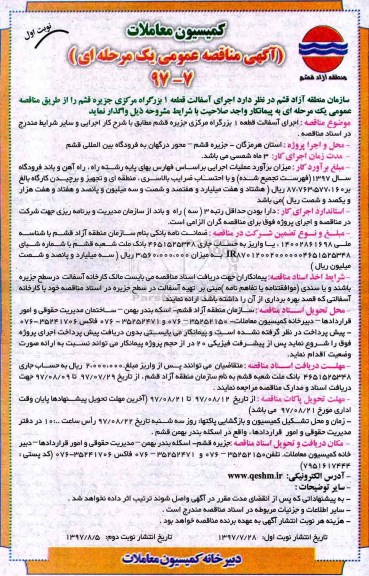 نوبت اول
کمیسیون معاملات
(آگهی مناقصه عمومی یک مرحله ای )
۷-۹۷
منطقه آزاد قشم
سازمان منطقه آزاد قشم در نظر دارد اجرای آسفالت قطعه ۱ بزرگراه مرکزی جزیره قشم را از طریق مناقصه
عمومی یک مرحله ای به پیمانکار واجد صلاحیت با شرایط مشروحه ذیل واگذار نماید
موضوع مناقصه : اجرای آسفالت قطعه ۱ بزرگراه مرکزی جزیره قشم مطابق با شرح کار اجرایی و سایر شرایط مندرج
در اسناد مناقصه .
- محل و اجرا پروژه : استان هرمزگان - جزیره قشم - محور درگهان به فرودگاه بین المللی قشم
- مدت زمان اجرای کار: ۳ ماه شمسی می باشد.
- مبلغ برآورد کار : میزان برآورد عملیات اجرایی براساس فهارس بهای پایه رشته راه، راه آهن و باند فرودگاه
سال ۱۳۹۷ (فهرست تجمیع شده) و با احتساب ضرایب بالاسری ، منطقه ای و تجهیز و برچیدن کارگاه بالغ
بر ۸۷،۷۶۳،۵۷۷،۱۶۰ ریال ( هشتاد و هفت میلیارد و هفتصد و شصت و سه میلیون و پانصد و هفتاد و هفت هزار
و یکصد و شصت ریال )می باشد
- استاندارد اجرای کار : دارا بودن حداقل رتبه ۳ ( سه ) راه و باند از سازمان مدیریت و برنامه ریزی جهت شرکت
در مناقصه و اجرای پروژه فوق برای مناقصه گران الزامی است.
- مبلغ و نوع تضمین شرکت در مناقصه : ضمانت نامه بانکی بنام سازمان منطقه آزاد قشم با شناسه
ملی ۱۴۰۰۲۸۶۱۶۹۸ ، یا واریز به حساب جاری ۴۶۵۱۵۲۵۳۴۸ بانک ملت شعبه قشم با شماره شبای
IR به میزان ۳،۵۶۰،۰۰۰،۰۰۰ ریال ( سه میلیارد و پانصد و شصت
میلیون ریال )
- شرایط اخذ اسناد مناقصه: پیمانکاران جهت دریافت اسناد مناقصه می بایست مالک کارخانه آسفالت درسطح جزیره
باشند و یا سندی (موافقتنامه یا تفاهم نامه )مبنی بر تهیه آسفالت در سطح جزیره در اسناد مناقصه خود با کارخانه
آسفالتی که قصد بهره برداری از آن را داشته باشد، ارائه نمایند.
- محل تحویل اسناد مناقصه: سازمان منطقه آزاد قشم- اسکله بندر بهمن - ساختمان مدیریت حقوقی و امور
قراردادها - دبیرخانه کمیسیون معاملات- ۳۵۲۵۲۱۵۰-۰۷۶ و ۳۵۲۵۲۴۷۱-۰۷۶ فاکس ۳۵۲۴۱۷۰۶-۰۷۶
- پیش پرداخت در نظر گرفته نشده است و پیمانکار می بایستی بدون دریافت پیش پرداخت اجرای پروژه
فوق را شروع نماید پس از پیشرفت فیزیکی ۲۰ در از حجم پروژه پیمانکار می تواند نسبت به ارائه صورت
وضعیت اقدام نماید.
- مهلت دریافت اسناد مناقصه : متقاضیان می توانند پس از واریز مبلغ ۲،۰۰۰،۰۰۰ ریال به حساب جاری
۴۶۵۱۵۲۵۳۴۸ بانک ملت شعبه قشم به نام سازمان منطقه آزاد قشم ، از تاریخ ۹۷/۰۷/۲۹ تا ۹۷/۰۸/۰۹ جهت
دریافت اسناد و مدارک مناقصه مراجعه نمایند .
- مهلت تحویل پاکات مناقصه : از تاریخ ۹۷/۰۸/۱۲ تا ۹۷/۰۸/۲۱ (آخرین مهلت تحویل پیشنهادها پایان وقت
اداری مورخ ۹۷/۰۸/۲۱ می باشد)
- زمان و محل تشکیل کمیسیون و بازگشایی پاکتها: روز سه شنبه تاریخ ۹۷/۰۸/۲۲ رأس ساعت ۱۰:۰۰ در دفتر
مدیریت حقوقی و امور قراردادها، واقع در اسکله بندر بهمن قشم .
- مکان دریافت و تحویل اسناد مناقصه :جزیره قشم- اسکله بندر بهمن - مدیریت حقوقی و امور قراردادها - دبیر
خانه کمیسیون معاملات. تلفن ۳۵۲۵۲۱۵۰-۰۷۶ و ۳۵۲۵۲۴۷۱-۰۷۶ فاکس ۳۵۲۴۱۷۰۶-۰۷۶ (کد پستی :
۷۹۵۱۶۱۷۴۴۴)
- آدرس الکترونیکی: www.qeshm.ir
- سایر توضیحات :
- به پیشنهاداتی که پس از انقضای مدت مقرر در آگهی واصل شوند ترتیب اثر داده نخواهد شد .
- سایر اطلاعات و جزئیات مربوطه در اسناد مناقصه مندرج است .
- هزینه هر نوبت انتشار آگهی به عهده برنده مناقصه خواهد بود .
تاریخ انتشار نوبت اول: ۱۳۹۷/۷/۲۸ تاریخ انتشار نوبت دوم: ۱۳۹۷/۸/۵
دبیرخانه کمیسیون معاملات